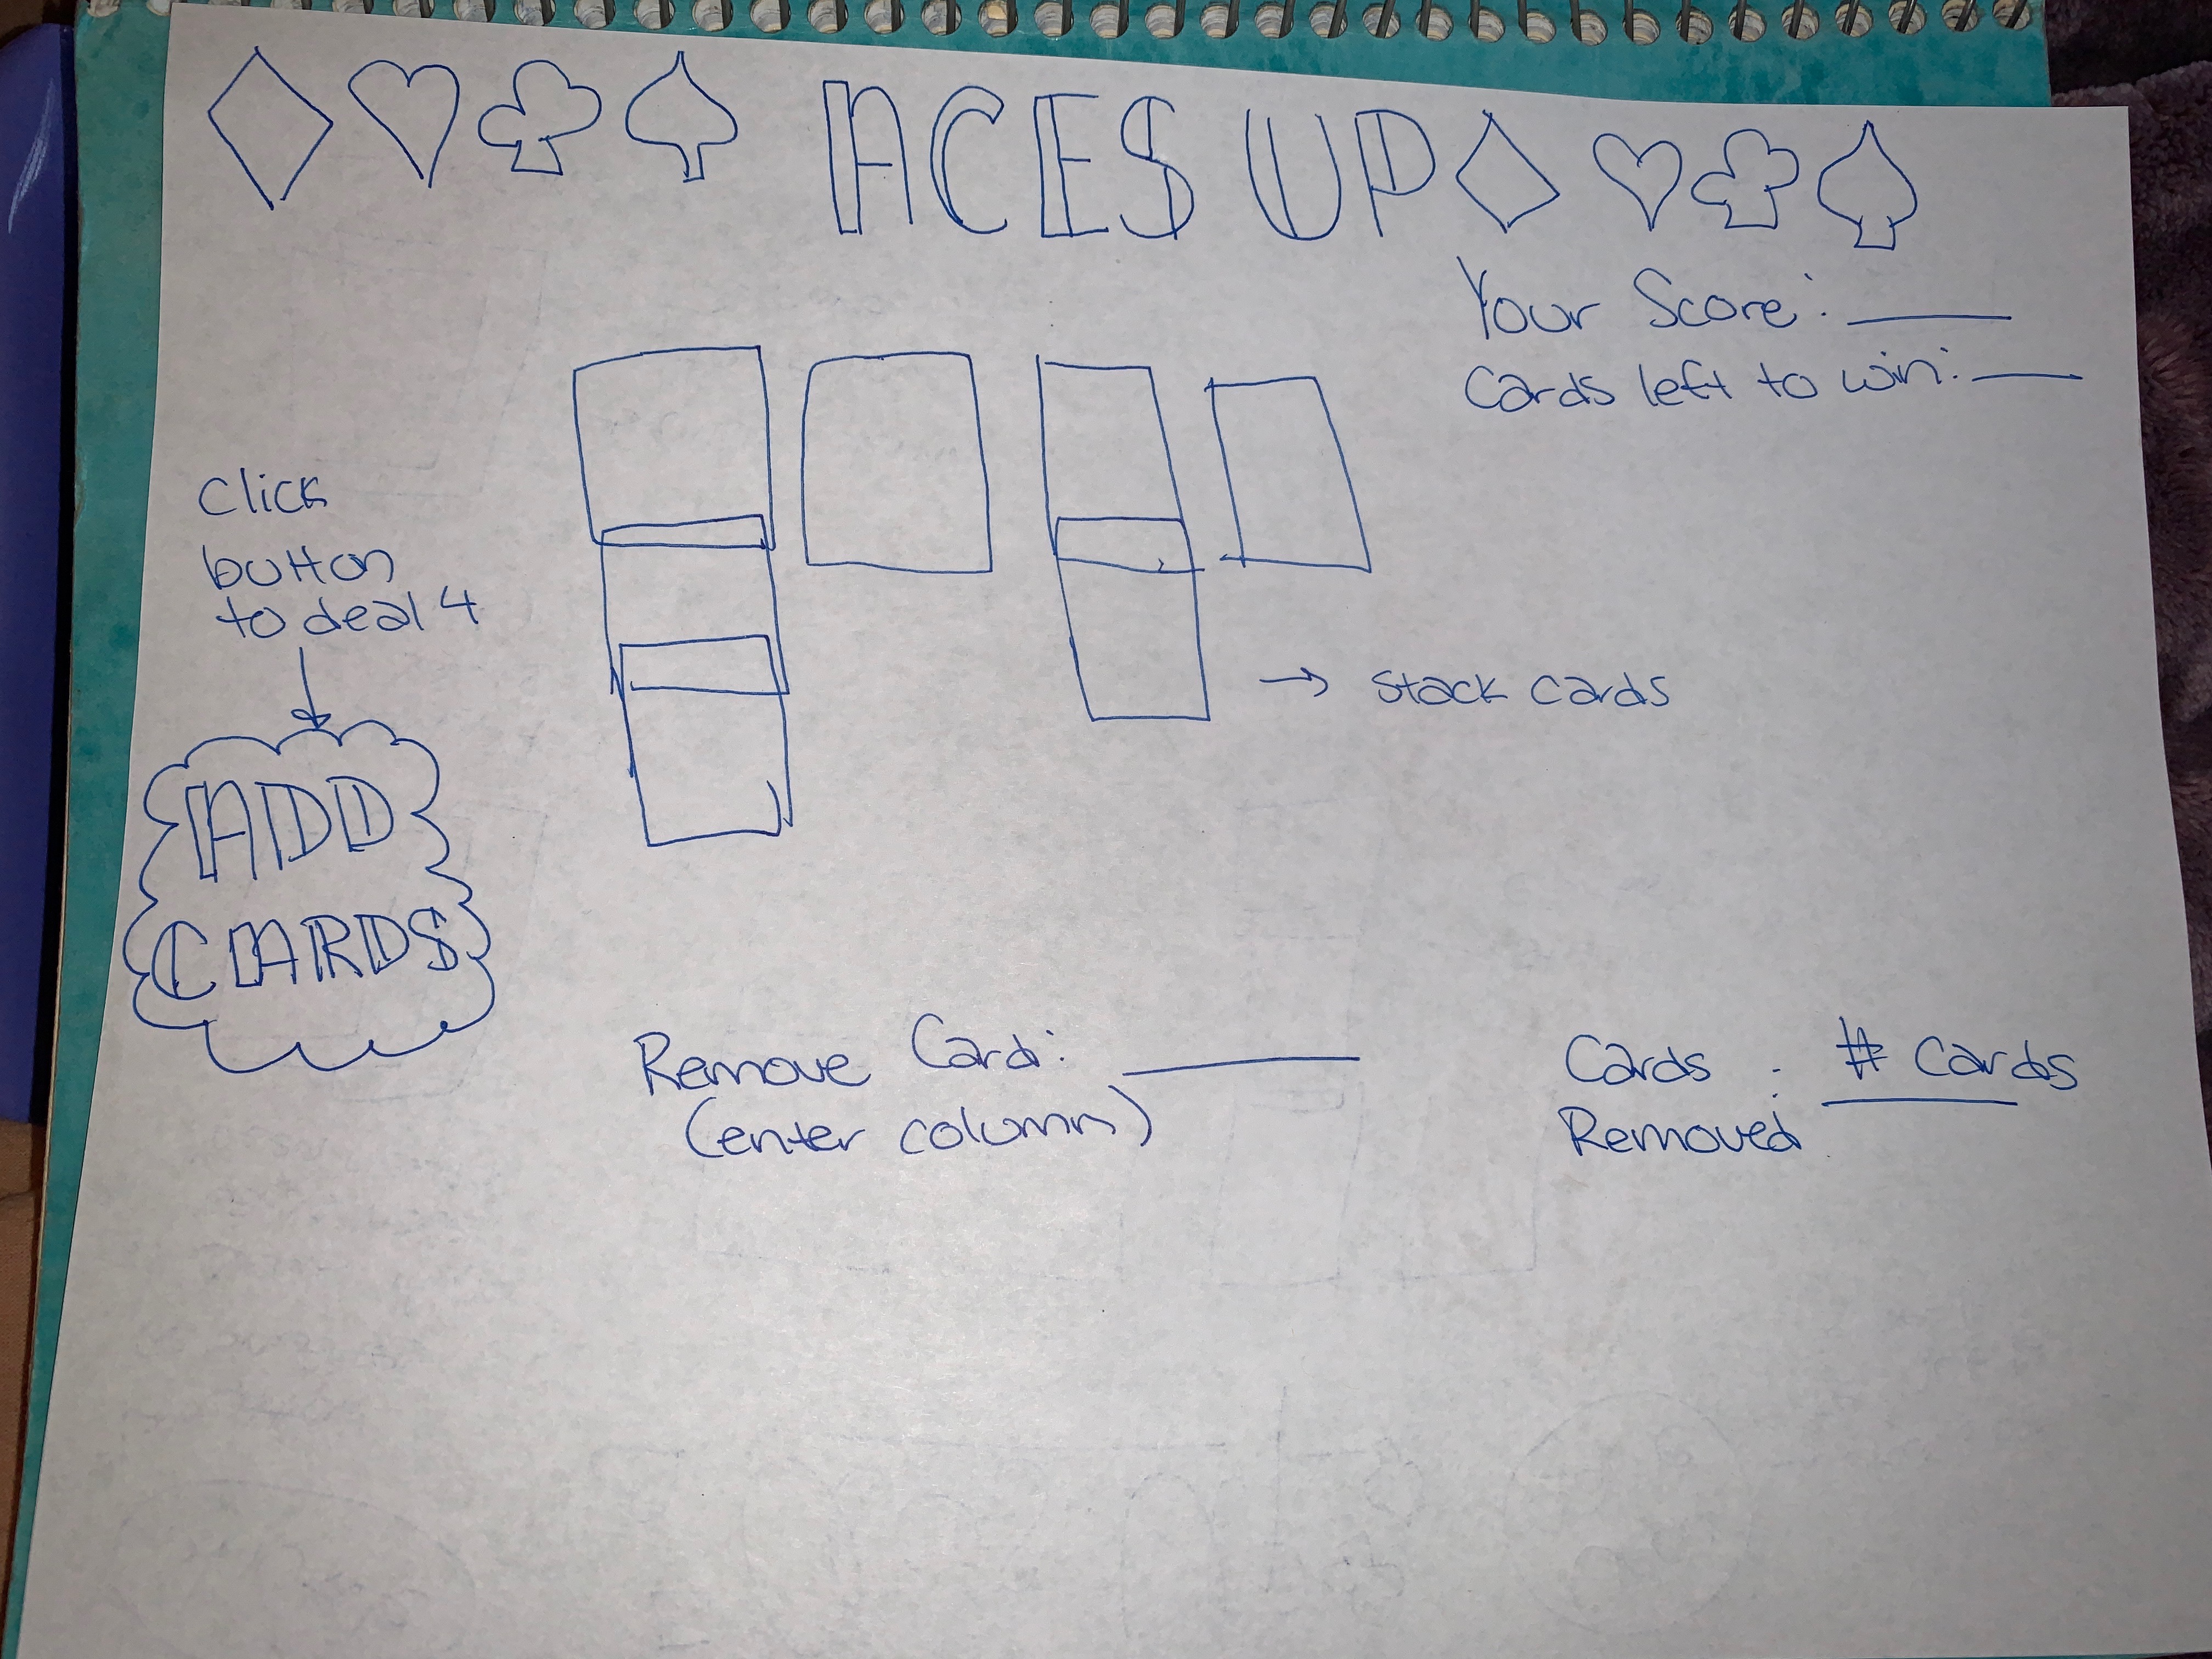 ACES UP
Your Score: ____
Cards left to win: ____
Click
button
to deal 4
→ stack cards
ADD
CARDS
Remove Card: ____
(enter column)
Cards : # Cards
Removed